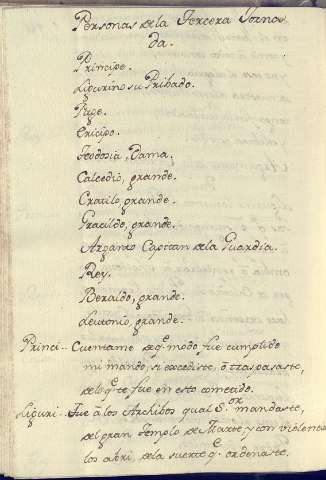 Personas de la Tercera Jorna
da.
Principe.
Ligurino su Pribado.
Page.
Ericipo.
Teodosia, Dama.
Calcedio, grande.
Cratilo, grande.
Gracildo, grande.
Arganto Capitan de la Guardia.
Rey.
Beraldo, grande.
Leutonio, grande.
Princi.. Cuentame de q.e modo fue cumplido
mi mando, si excediste, ò traspasaste,
de lo q.e te fue en esto cometido.
Liguri.. Fue à los Archibos qual S.or mandaste,
del gran Templo de Marte y con violencia
los abri, de la suerte q.e ordenaste.